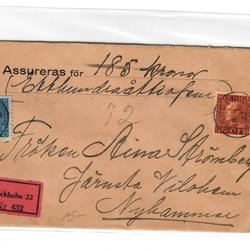 Assureras för 185 kronor
Etthundraåttiofem
72
Fröken Aina Strömberg
Järnsta Vilohem
Nyhammar
ockholm 22
432